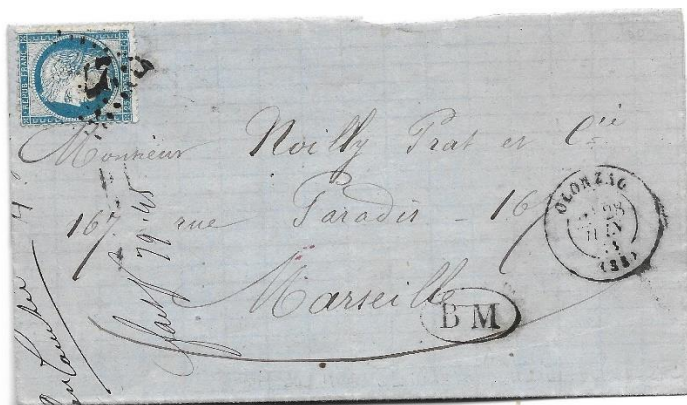 REPUB·FRANC
Monsieur Noilly Prat et Cie
167 rue Paradis - 167
Marseille
OLONZAC
28
JUIN
(32)
BM
79.45